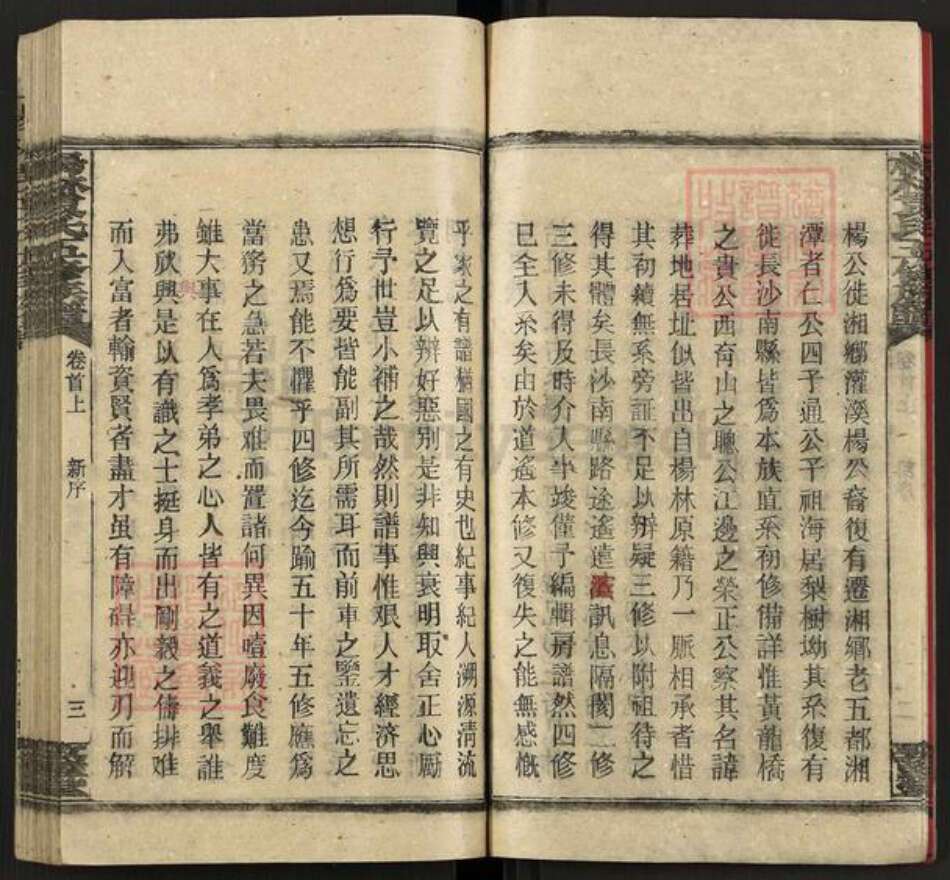 楊公徙湘鄉灌溪楊公裔復有遷湘鄉老五都湘
潭者仁公四子通公平祖海居梨樹坳其系復有
徙長沙南縣皆爲本族直系初修備詳惟黃龍橋
之貴公西奇山之聰公江邊之榮正公察其名諱
葬地居址似皆出自楊林原籍乃一脈相承者惜
其初續無系旁証不足以辨疑三修以附祖待之
得其體矣長沙南縣路途遙遠 訊息隔閡二修
三修未得及時介入事竣僅予編輯房譜然四修
已全入系矣由於道遙本修又復失之能無感慨
乎家之有譜猶國之有史也紀事紀人溯源清流
覽之足以辨好惡别是非知興衰明取舍正心勵
行予世豈小補之哉然則譜事惟艰人才經济思
想行爲要皆能副其所需耳而前車之鑒遺忘之
患又焉能不懼乎四修迄今踰五十年五修應爲
當務之急若夫畏难而置諸何異因噎廢食難度
雖大事在人爲孝弟之心人皆有之道義之舉誰
弗欣興是以有識之士挺身而出剛毅之儔排难
而入富者輸資賢者盡才虽有障碍亦迎刃而解
與
卷首上
新序
三